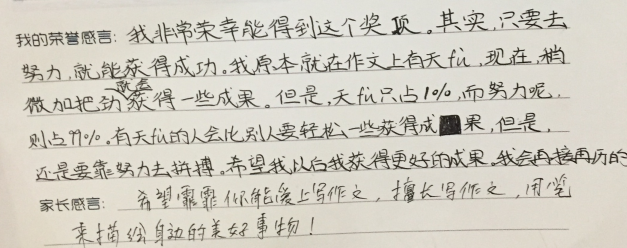 我的荣誉感言：我非常荣幸能得到这个奖项。其实，只要去
努力，就能获得成功。我原本就在作文上有天fù，现在，稍
微加把劲就会获得一些成果。但是，天fù只占1%，而努力呢，
则占99%。有天fù的人会比别人要轻松一些获得成果，但是，
还是要靠努力去拼搏。希望我以后我获得更好的成果。我会再接再历的
家长感言：希望霏霏你能爱上写作文，擅长写作文，用笔
来描绘身边的美好事物！